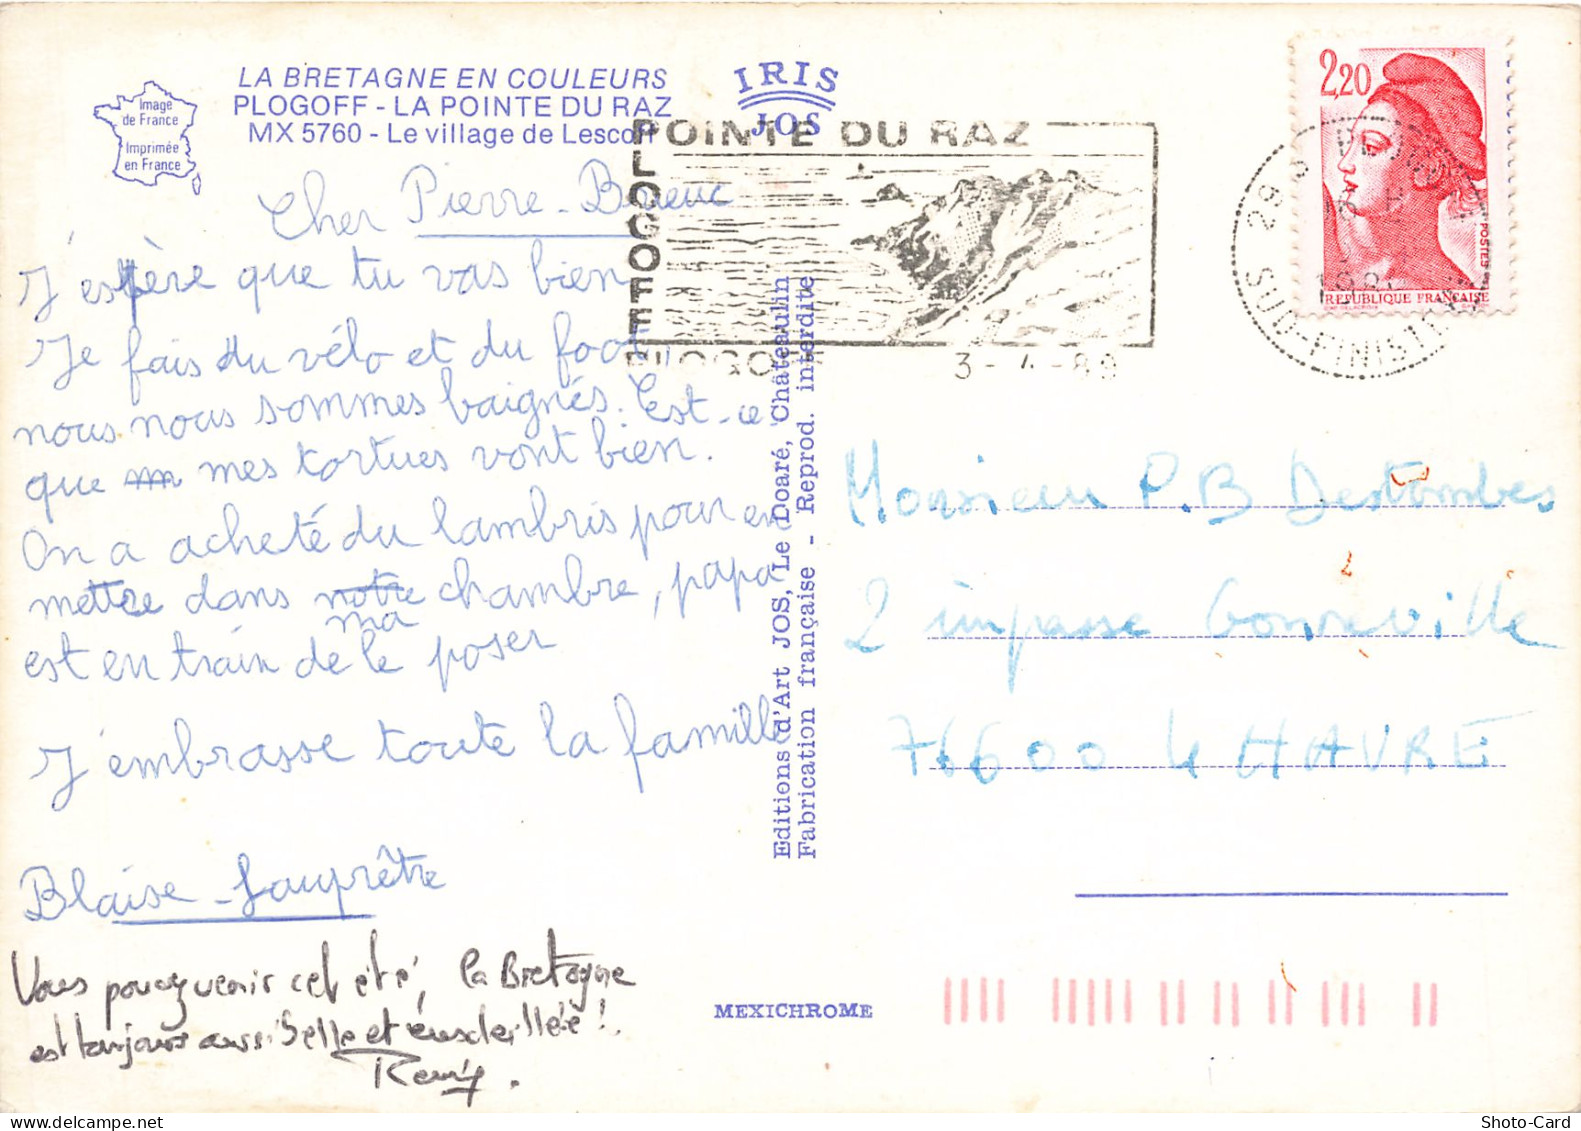 LA BRETAGNE EN COULEURS
PLOGOFF - LA POINTE DU RAZ
MX 5760 - Le village de Lescoff
Image
de France
Imprimée
en France
IRIS
JOS
POINTE DU RAZ
PLOGOFF
PLOGOFF
3-4-89
2,20
POSTES
REPUBLIQUE FRANÇAISE
29
SUD-FINISTERE
Cher Pierre-Brieuc
J'espère que tu vas bien
Je fais du vélo et du foot,
nous nous sommes baignés. Est-ce
que m mes tortues vont bien.
On a acheté du lambris pour en
mettre dans notre chambre, papa
ma
est en train de le poser
J'embrasse toute la famille
Blaise-Lauprêtre
Vous pouvez venir cet été, la Bretagne
est toujours aussi belle et ensoleillée !
Remy.
Editions d'Art JOS, Le Doaré, Châteaulin
Fabrication française - Reprod. interdite
Monsieur P.B Destombes
2 impasse Gonneville
76600 le HAVRE
MEXICHROME
Shoto-Card